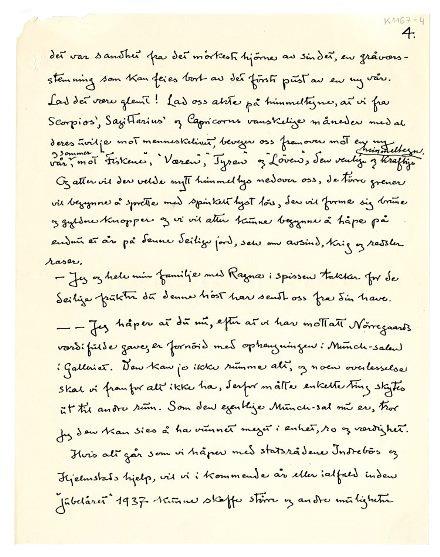 K 1167-4
4.
det var sandhet fra det mörkeste hjörne av sindet, en gråveirs-
stemning som kan feies bort av det förste pust av en ny vår.
Lad det være glemt! Lad oss akte på himmeltegne, at vi fra
Scorpios', Sagittarius' og Capricorns vanskelige måneder med al
deres uvilje mot menneskelivet, beveger oss fremover mot en ny
vår og sommer mot "Fiskene", "Væren", Tyren og Löven, den venlige og kraftige himmeltegn.
Og atter vil der velde nytt himmellys nedover oss, de törre grener
vil begynne å sprette med spinkelt lyst löv, der vil forme sig brune
og gyldne knopper og vi vil atter kunne begynne å håpe på
endnu et år på denne deilige jord, selv om avsind, krig og redsler
raser.
— Jeg og hele min familie med Ragna i spissen takker for de
deilige frukter du denne höst har sendt oss fra din have.
— — Jeg håper at du nu, efter at vi har mottatt Nörregaards
værdifulde gaver, er fornöid med ophengningen i Munch-salen
i Galleriet. Den kan jo ikke rumme alt, og noen overlesselse
skal vi fremfor alt ikke ha, derfor måtte enkelte ting skytes
ut til andre rum. Som den egentlige Munch-sal nu er, tror
jeg den kan sies å ha vunnet meget i enhet, ro og værdighet.
Hvis alt går som vi håper med statsrådene Indrebös og
Hjelmstads hjelp, vil vi i kommende år eller ialfald inden
"jubelåret" 1937 kunne skaffe större og andre muligheter